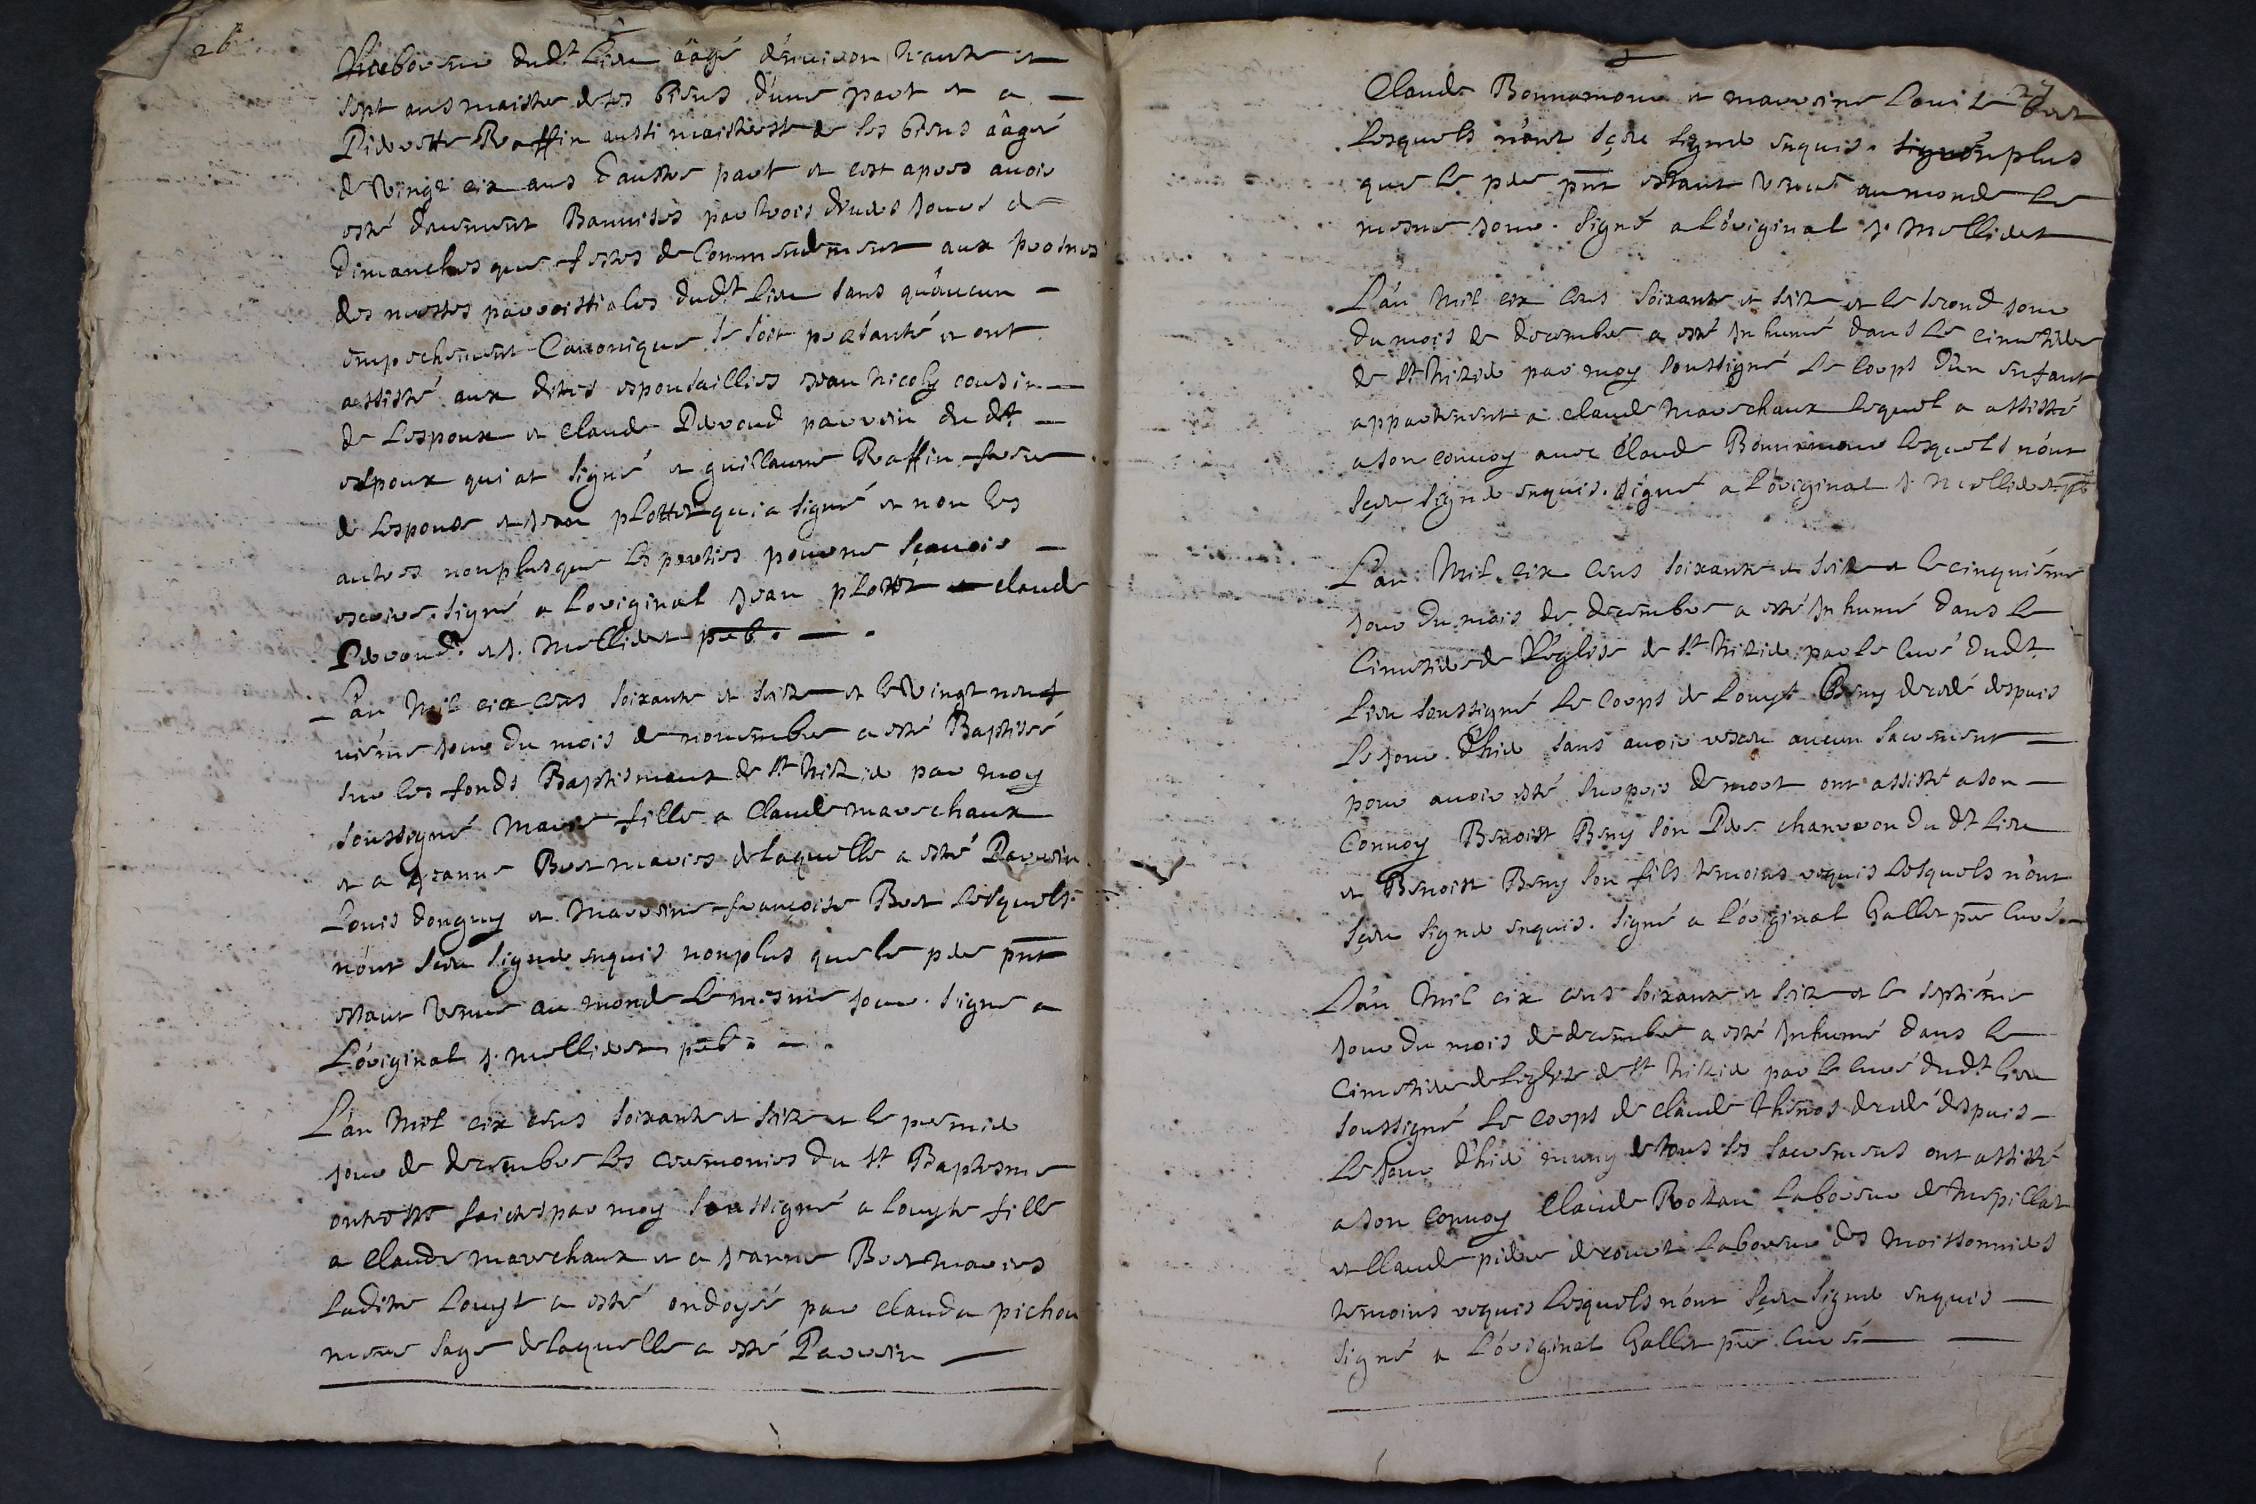 26
dud.t lieu aâgé d'enuiron trante et
sept ans maistre de ses biens d'une part et a
Pierrette Raffin aussi maistresse de ses biens aâgeé
de Vingt six ans d'austre part et cest apres auoir
esté deuement Bannises par trois diuers jours de
dimanches que festes de Commendement aux prosnes
des messes parroissiales dud.t lieu sans qu'aucun
empechement Canonique se soit presanté et ont
assisté aux dites espousailles jean nicoly cousin
de l'espoux et claude Peroud parrein du dt
espoux qui at signé et guillaume Raffin frere
de l'espouse et jean plottet qui a signé et non les
autres nonplus que les parties pour ne sçauoir
escrire. signé a l'original jean plottet et claude
Peroud. et j. Mollieret pstre.
L'an Mil six cens soixante et seize et le Vingt neuf
uiéme jour du mois de nouembre a esté Baptisée
sur les fonds Baptismaux de st trizier par moy
soussigné Marie fille a Claude mareschaux
et a jeanne Boet mariés de laquelle a esté Parrein
Louis donguy et Marreine françoise Boet lesquels
n'ont sceu signer enquis nonplus que le pere pnt
estant Venue au monde le mesme jour. signé a
L'original j. mollieret pstre.
L'an Mil six cens soixante et seize et le premier
jour de decembre les ceremonies du st Baptesme
ont esté faictes par moy soussigné a Louyse fille
a Claude mareschaux et a jeanne Boet mariés
Ladite Louyse a esté ondoyeé par clauda pichon
mere sage de laquelle a esté Parrein
27
Claude Bonnamour et marreine Louise Boet
Lesquels n'ont sçeu signer enquis. signé nonplus
que le pere pnt estant Venue au monde le
mesme jour. Signé a L'original j. Mollieret
L'an Mil six cens soixante et seize et le second jour
du mois de decembre a esté Inhumé dans le cimetiere
de st trizier par moy soussigné le corps d'un enfant
appartenent a claude Mareschaux lequel a assisté
a son conuoy auec Claude Bonnamour lesquels n'ont
sçeu signer enquis. signé a L'original j. mollieret. pb
L'an Mil six cens soixante et seize et le cinquiéme
jour du mois de decembre a esté Inhumé dans le
Cimetiere de L'eglise de st trizier par le Curé dudt
Lieu soussigné le Corps de Louys Beny decedé despuis
le jour d'hier sans auoir receu aucun sacrement
pour auoir esté surpris de mort ont assisté a son
Conuoy Benoist Beny son Pere charreon du dt Lieu
et Benoist Beny son fils temoins requis lesquels n'ont
sçeu signer enquis. signé a L'original Gallet pre curé.
L'an Mil six cens soixante et seize et le septiéme
jour du mois de decembre a esté Inhumé dans le
Cimetiere de L'eglise de st trizier par le Curé dud.t lieu
soussigné le corps de claude thenos decedé despuis
Le jour d'hier muny de tous les sacremens ont assisté
a son conuoy Claude Rozan Laboreur de Mepillat
et Claude pierre Laboreur des Moissonniers
temoins requis lesquels n'ont sçeu signer enquis
signé a L'original Gallet pre. Curé